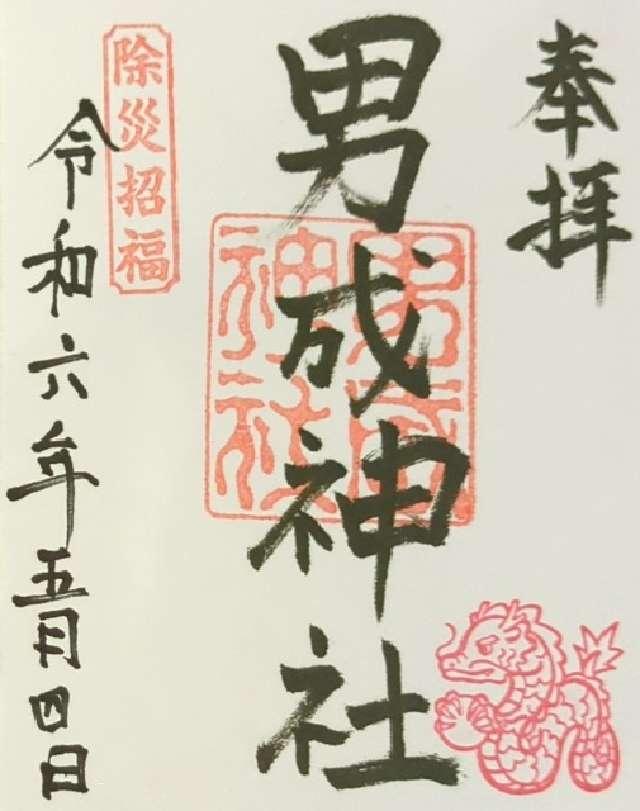 奉拝
男成神社
男成
神社
除災招福
令和六年五月四日